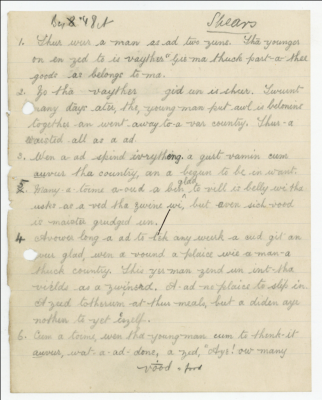 Spears
1. Thur wur a man as ad two zuns. Tha younger
on en zed to is vayther "Giv ma thuck part-a thee
goods as belongs to-ma.
2. Zo tha vayther gid un is sheer. Twurnt
many days ater, the young-man put awl is belonins
together an went away to a var country. Thur-a
wasted all as a ad.
3. Wen a ad spend ivrything a gurt vamin cum
auver tha country, an a began to be in want.
Many a time a-oud a bin glad to vill is belly wi the
usks as a ved tha zwine wi, but even sich-vood
is maister grudged un.
4. Avower long a ad to tek any weerk a cud git an
wur glad, wen a vound a plaice wie a man a
thuck country. This yer-man zend un int tha
veelds as a zwinerd. A-ad no plaice to slip in
A zeed t'otherum at thur meals, but a diden ayr
nothen to yet izzelf.
6. Cum a time, wen tha young-man cum to think-it
auver, wat-a-ad-done, a zed, "Ayr! ow many
vood = food